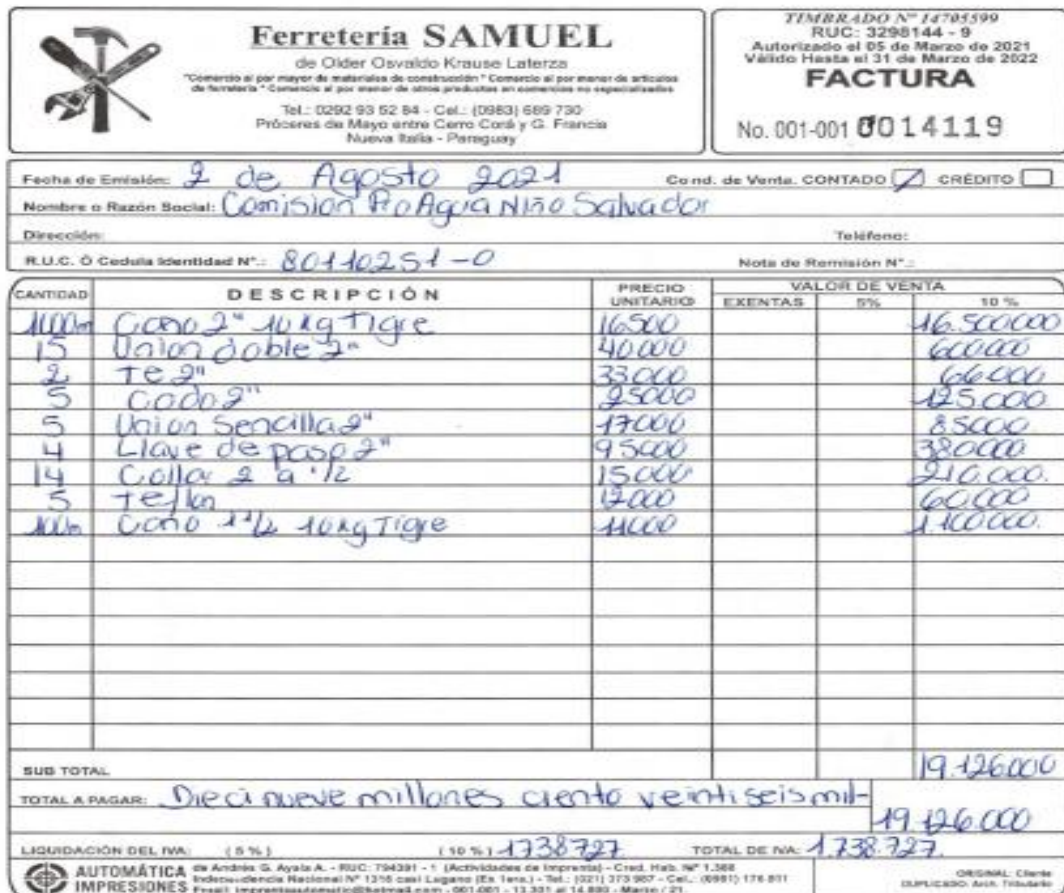 Ferretería SAMUEL
de Older Osvaldo Krause Laterza
"Comercio al por mayor de materiales de construcción * Comercio al por menor de artículos
de ferretería * Comercio al por menor de otros productos en comercios no especializados
Tel.: 0292 93 52 84 - Cel.: (0983) 689 730
Próceres de Mayo entre Cerro Corá y G. Francia
Nueva Italia - Paraguay
TIMBRADO Nº 14705599
RUC: 3298144 - 9
Autorizado el 05 de Marzo de 2021
Válido Hasta el 31 de Marzo de 2022
FACTURA
No. 001-001 0014119
Fecha de Emisión: 2 de Agosto 2021 Cond. de Venta. CONTADO CRÉDITO
Nombre o Razón Social: Comision Pro Agua Niño Salvador
Dirección: Teléfono:
R.U.C. Ó Cedula Identidad Nº.: 80110251-0 Nota de Remisión Nº.:
CANTIDAD DESCRIPCIÓN PRECIO UNITARIO VALOR DE VENTA
EXENTAS 5% 10 %
1000m Caño 2" 10 kg Tigre 16500 16.500.000
15 Union doble 2" 40000 600.000
2 Te 2" 33.000 66.000
5 Codo 2" 25000 125.000
5 Union Sencilla 2" 17000 85000
4 Llave de paso 2" 95000 380.000
14 Collar 2 a 1/2 15000 210.000.
5 Teflon 12000 60.000
100m Caño 1 1/2 10 kg Tigre 11000 1.100.000.
SUB TOTAL 19.126.000
TOTAL A PAGAR: Dieci nueve millones ciento veintiseis mil-
19.126.000
LIQUIDACIÓN DEL IVA: (5 %) (10 %) 1738727 TOTAL DE IVA: 1.738.727.
AUTOMÁTICA IMPRESIONES
de Andrés G. Ayala A. - RUC: 794391 - 1 (Actividades de Imprenta) - Cred. Hab. Nº 1.388
Independencia Nacional Nº 1316 casi Lugano - Tel.: (021) 373 907 - Cel.: (0981) 176 811
ORIGINAL: Cliente
DUPLICADO: Arch. Tributario